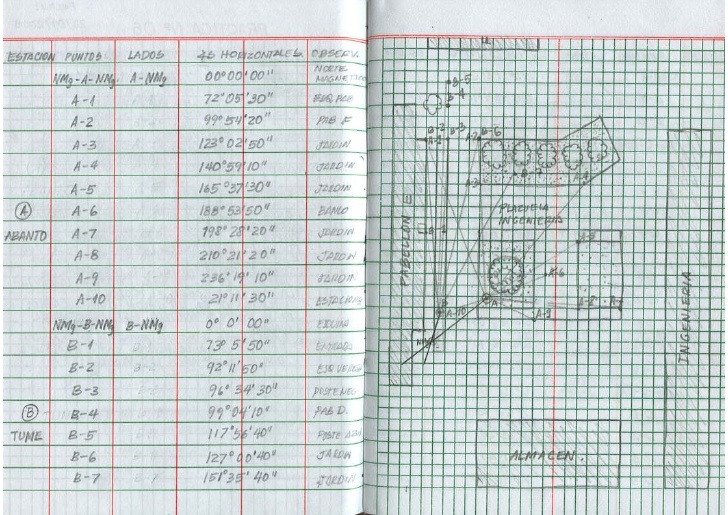 ESTACION PUNTOS LADOS ∡S HORIZONTALES OBSERV.
NMg-A-NMg. A-NMg 00°00'00" NORTE MAGNETICO
A-1 72°05'30"
A-2 99°54'20" PAB F
A-3 123°02'50" JARDIN
A-4 140°59'10" JARDIN
A-5 165°37'30" JARDIN
Ⓐ A-6 188°53'50" BANCO
ABANTO A-7 198°28'20" JARDIN
A-8 210°21'20" JARDIN
A-9 236°19'10" JARDIN
A-10 21°11'30"
NMg-B-NMg B-NMg 0° 0' 00"
B-1 73° 5'50" ENTRADA
B-2 92°11'50"
B-3 96° 34'30"
Ⓑ B-4 99°04'10" PAB D.
TUME B-5 117°56'40" POSTE
B-6 127°00'40" JARDIN
B-7 151°35'40" JARDIN
B-5
B-4
B-2 B-3 A-2 B-6
A-1
B-7
A-3
A-4
PLAZUELA
INGENIERIA
PABELLON E
B-1
A-5
A-6
B
A-10
A
A-8 A-7
A-9
NMg
INGENIERIA
ALMACEN.